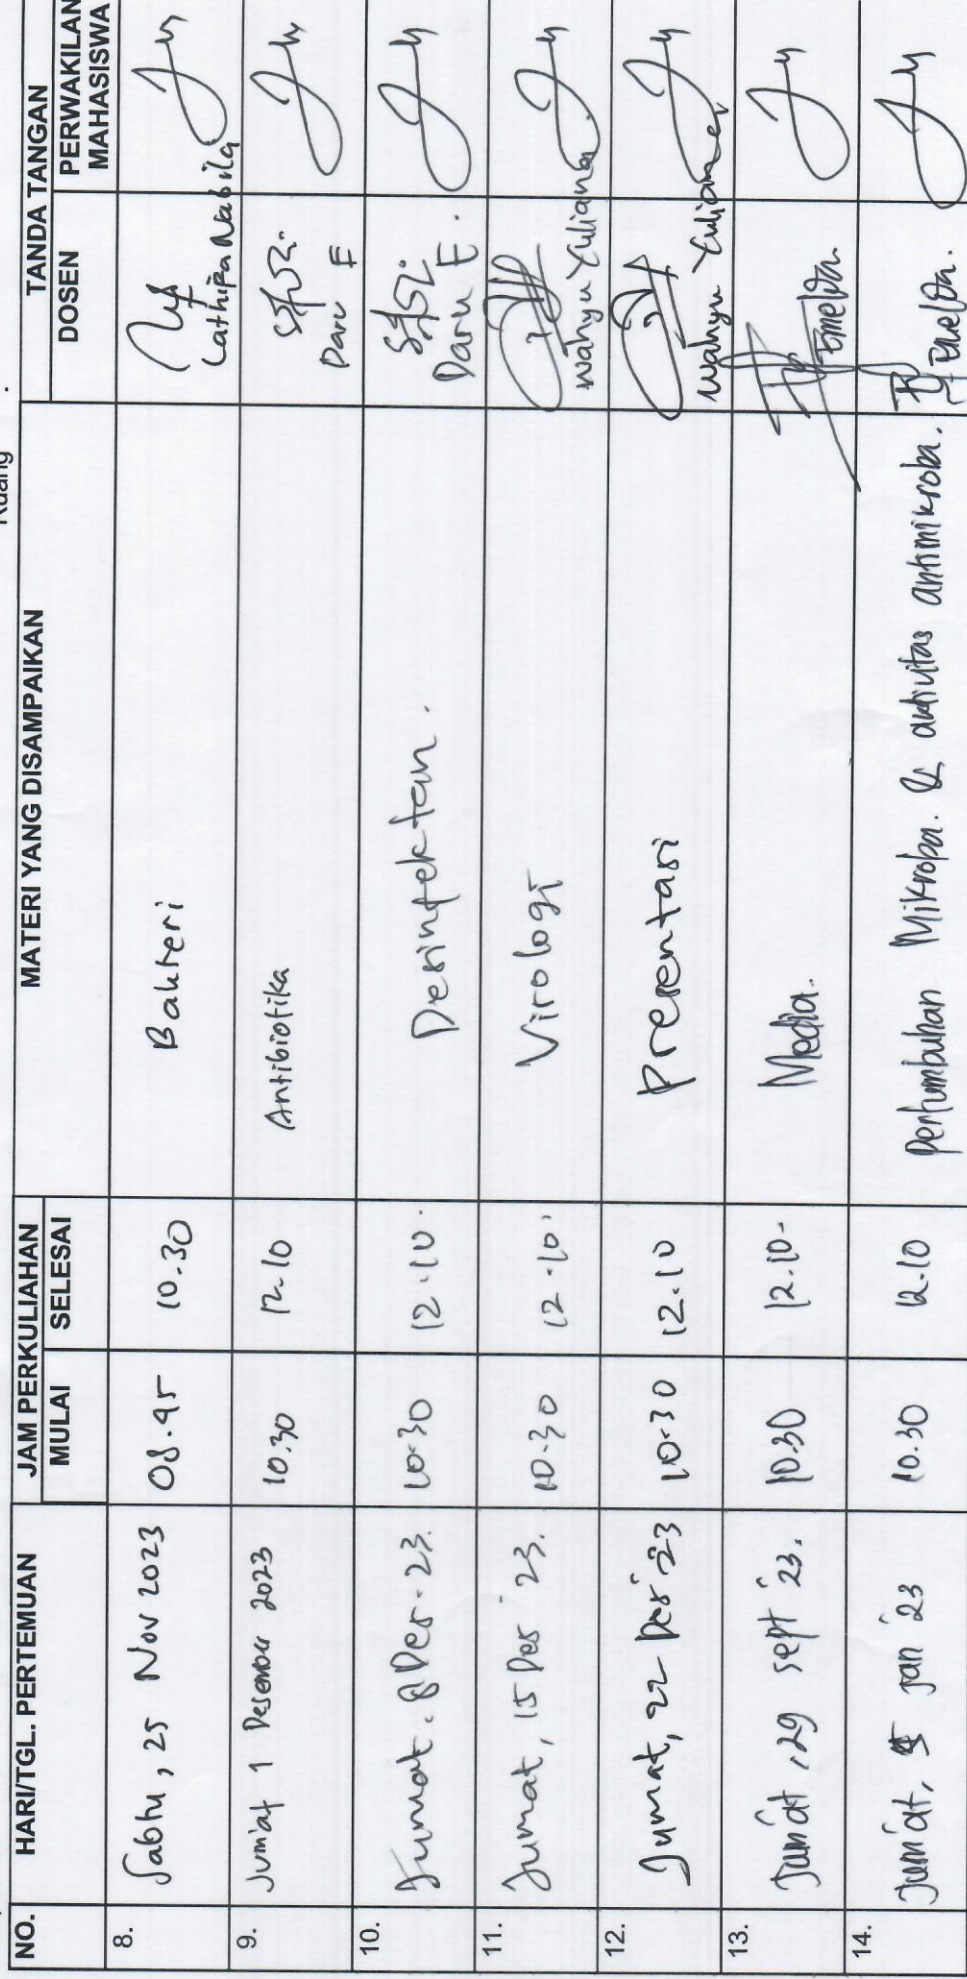 Ruang :
NO. HARI/TGL. PERTEMUAN JAM PERKULIAHAN MATERI YANG DISAMPAIKAN TANDA TANGAN
MULAI SELESAI DOSEN PERWAKILAN MAHASISWA
8. Sabtu, 25 Nov 2023 08.45 10.30 Bakteri Lathifa Nabila
9. Jum'at 1 Desember 2023 10.30 12.10 Antibiotika Daru E
10. Jumat. 8 Des. 23. 10.30 12.10. Desinfektan. Daru E.
11. Jumat, 15 Des' 23. 10.30 12.10. Virologi Wahyu Yuliana
12. Jumat, 22 Des' 23 10.30 12.10 Presentasi Wahyu Yuliana
13. Jum'at, 29 sept '23. 10.30 12.10. Media. Emelda.
14. Jum'at, 5 jan '23 10.30 12.10 pertumbuhan Mikroba. & aktivitas antimikroba. Emelda.